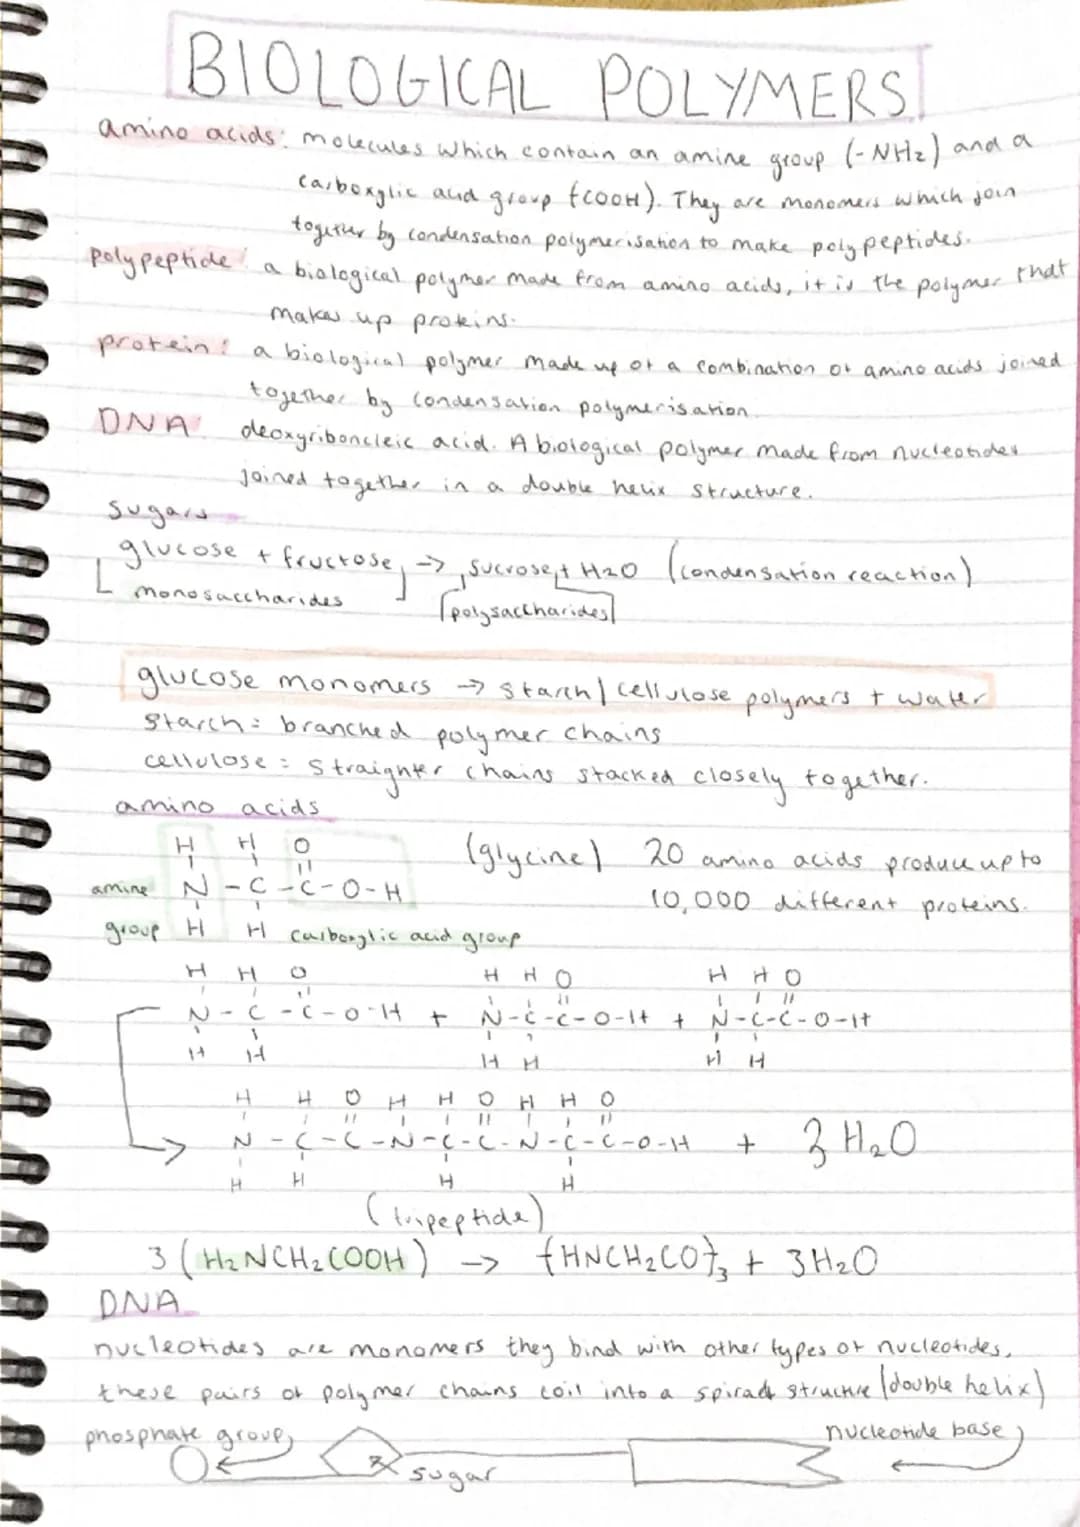 BIOLOGICAL POLYMERS
amino acids: molecules which contain an amine group (-NH2) and a
carboxylic acid group (COOH). They are monomers which join
together by condensation polymerisation to make polypeptides.
polypeptide: a biological polymer made from amino acids, it is the polymer that
makes up proteins.
protein: a biological polymer made up of a combination of amino acids joined
together by condensation polymerisation.
DNA: deoxyriboncleic acid. A biological polymer made from nucleotides
joined together in a double helix structure.
sugars
glucose + fructose -> sucrose + H2O (condensation reaction)
monosaccharides
polysaccharides
glucose monomers -> starch/cellulose polymers + water
starch = branched polymer chains
cellulose = straighter chains stacked closely together.
amino acids
H H O
amine N-C-C-O-H (glycine) 20 amino acids produce up to
10,000 different proteins.
group H H carboxylic acid group
H H O H H O H H O
N-C-C-O-H + N-C-C-O-H + N-C-C-O-H
H H H H H H
H H O H H O H H O
N-C-C-N-C-C-N-C-C-O-H + 3H2O
H H H H
(tripeptide)
3(H2NCH2COOH) -> {HNCH2CO}3 + 3H2O
DNA
nucleotides are monomers they bind with other types of nucleotides,
these pairs of polymer chains coil into a spiral structure (double helix)
phosphate group nucleotide base
sugar